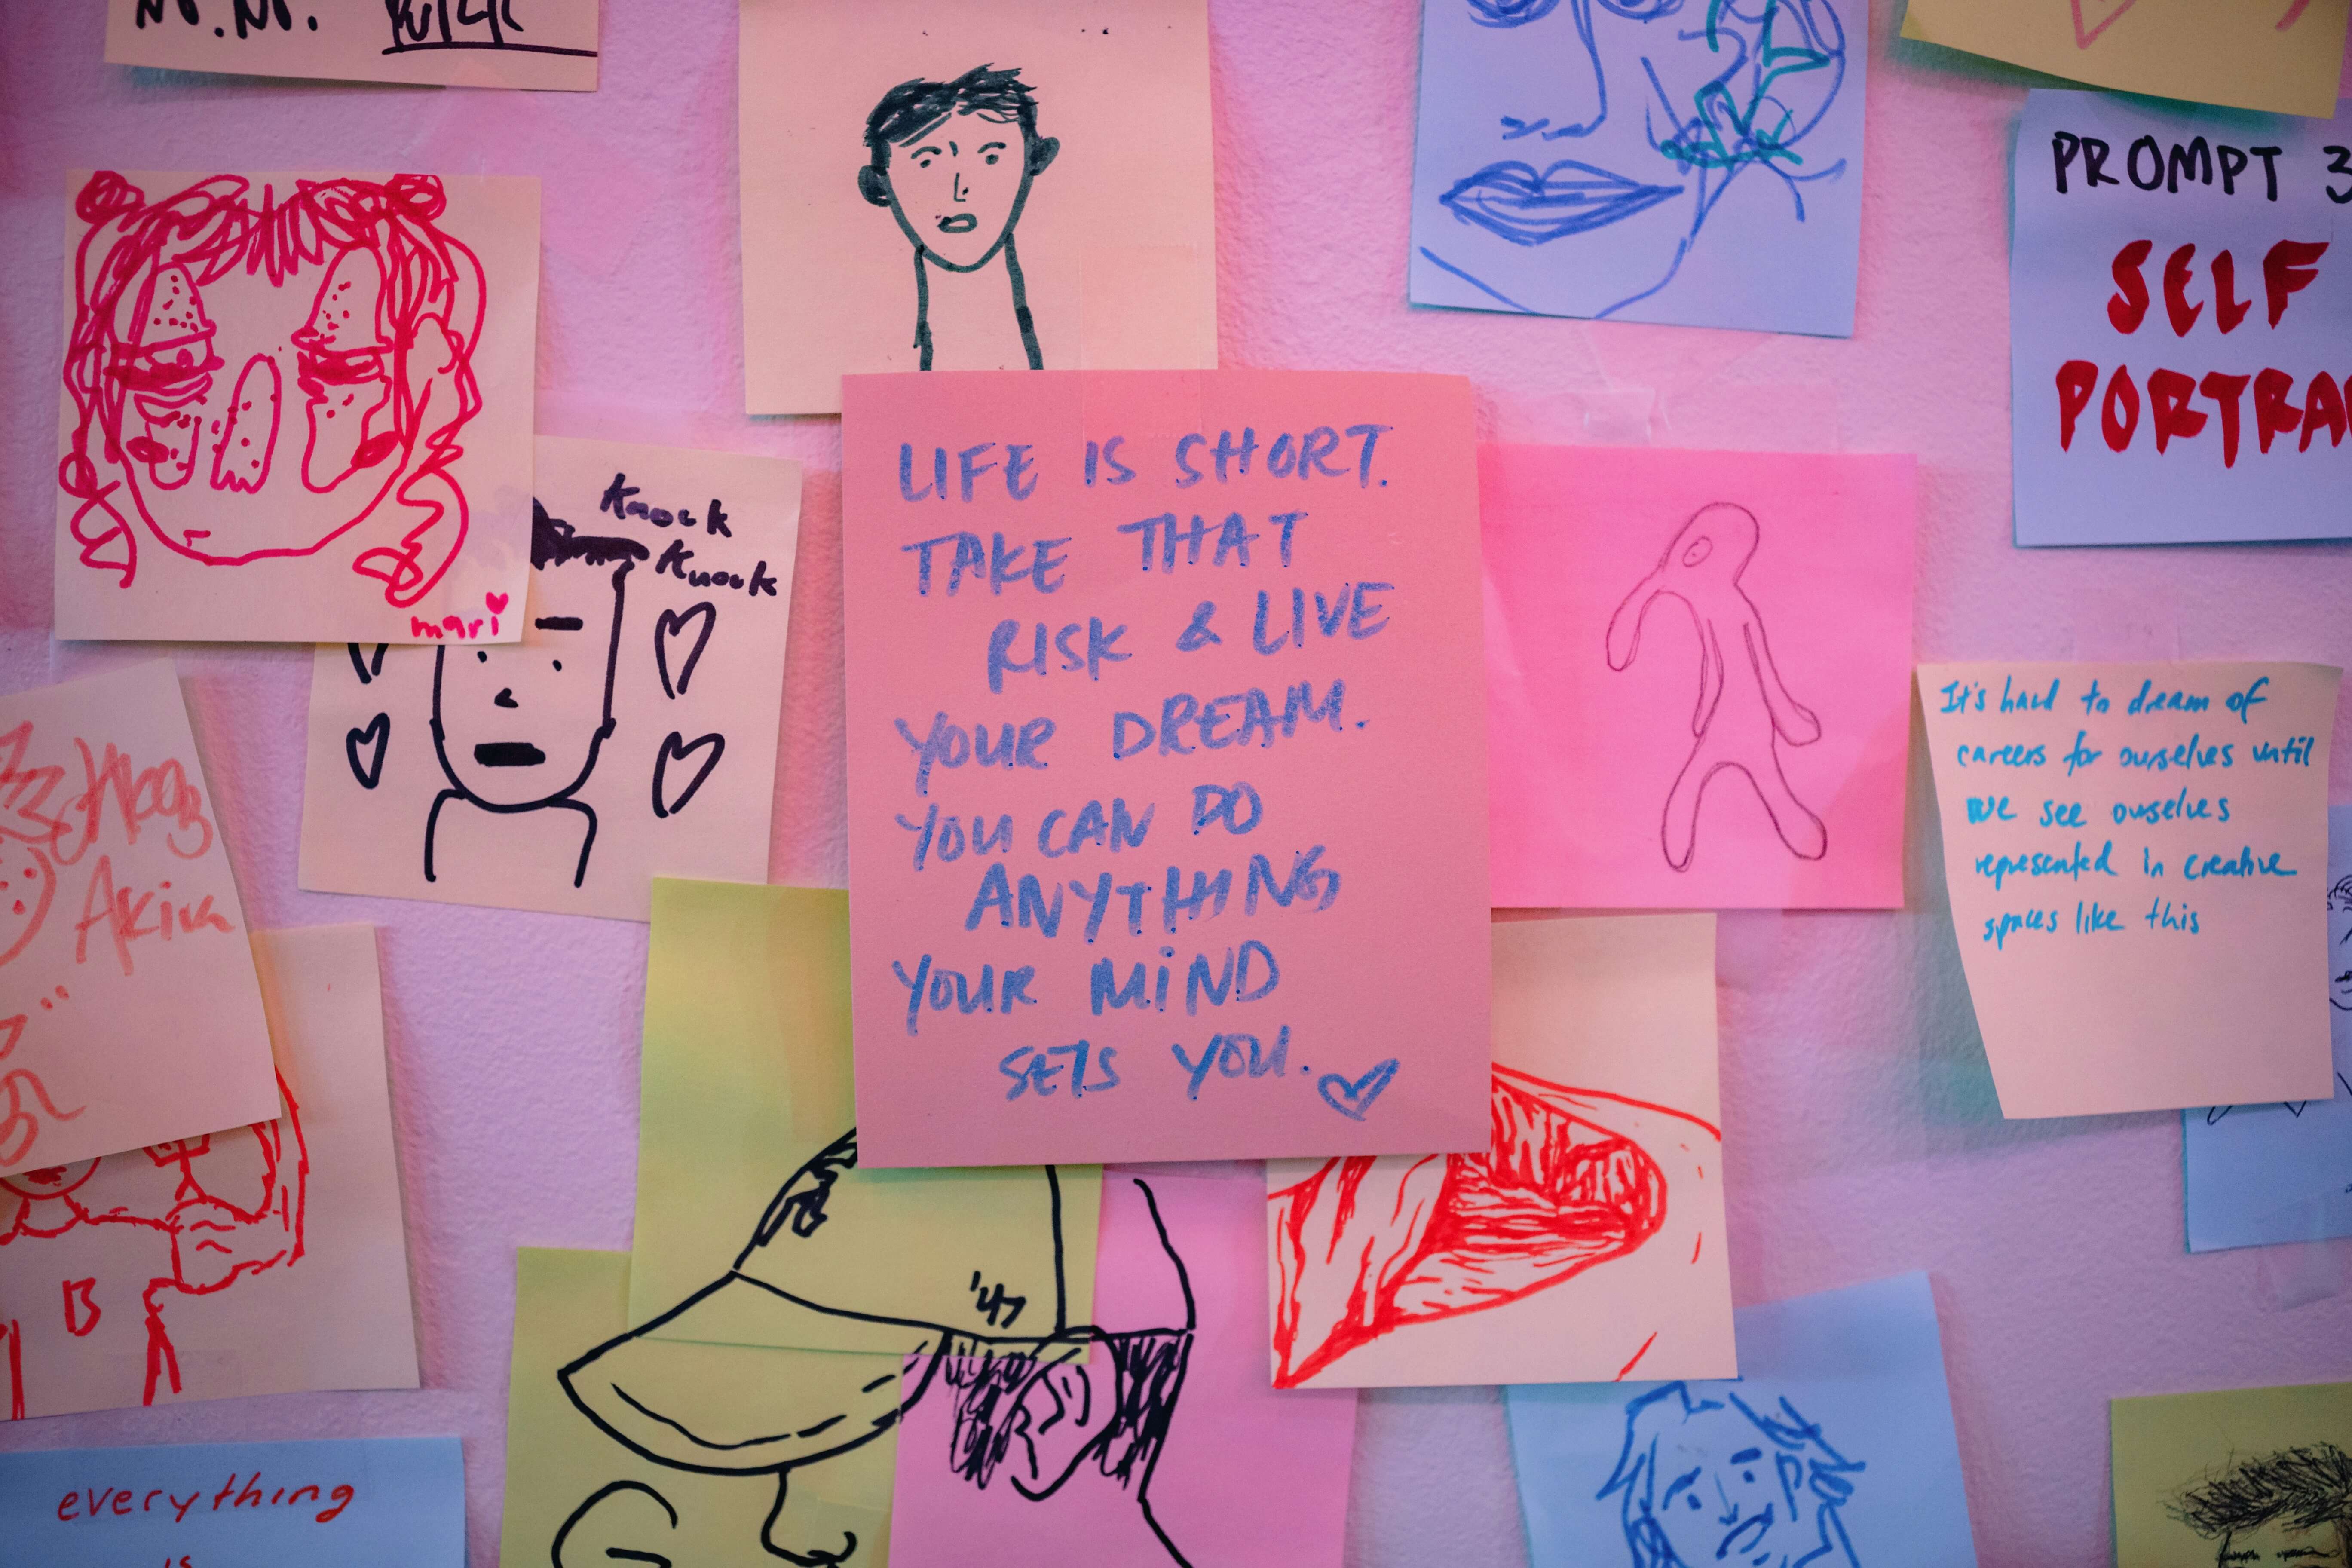 PROMPT 3
SELF
mari
Knock
Knock
LIFE IS SHORT.
TAKE THAT
RISK & LIVE
YOUR DREAM.
YOU CAN DO
ANYTHING
YOUR MIND
SETS YOU.
It's hard to dream of
careers for ourselves until
we see ourselves
represented in creative
spaces like this
Akira
B
'47
everything
is